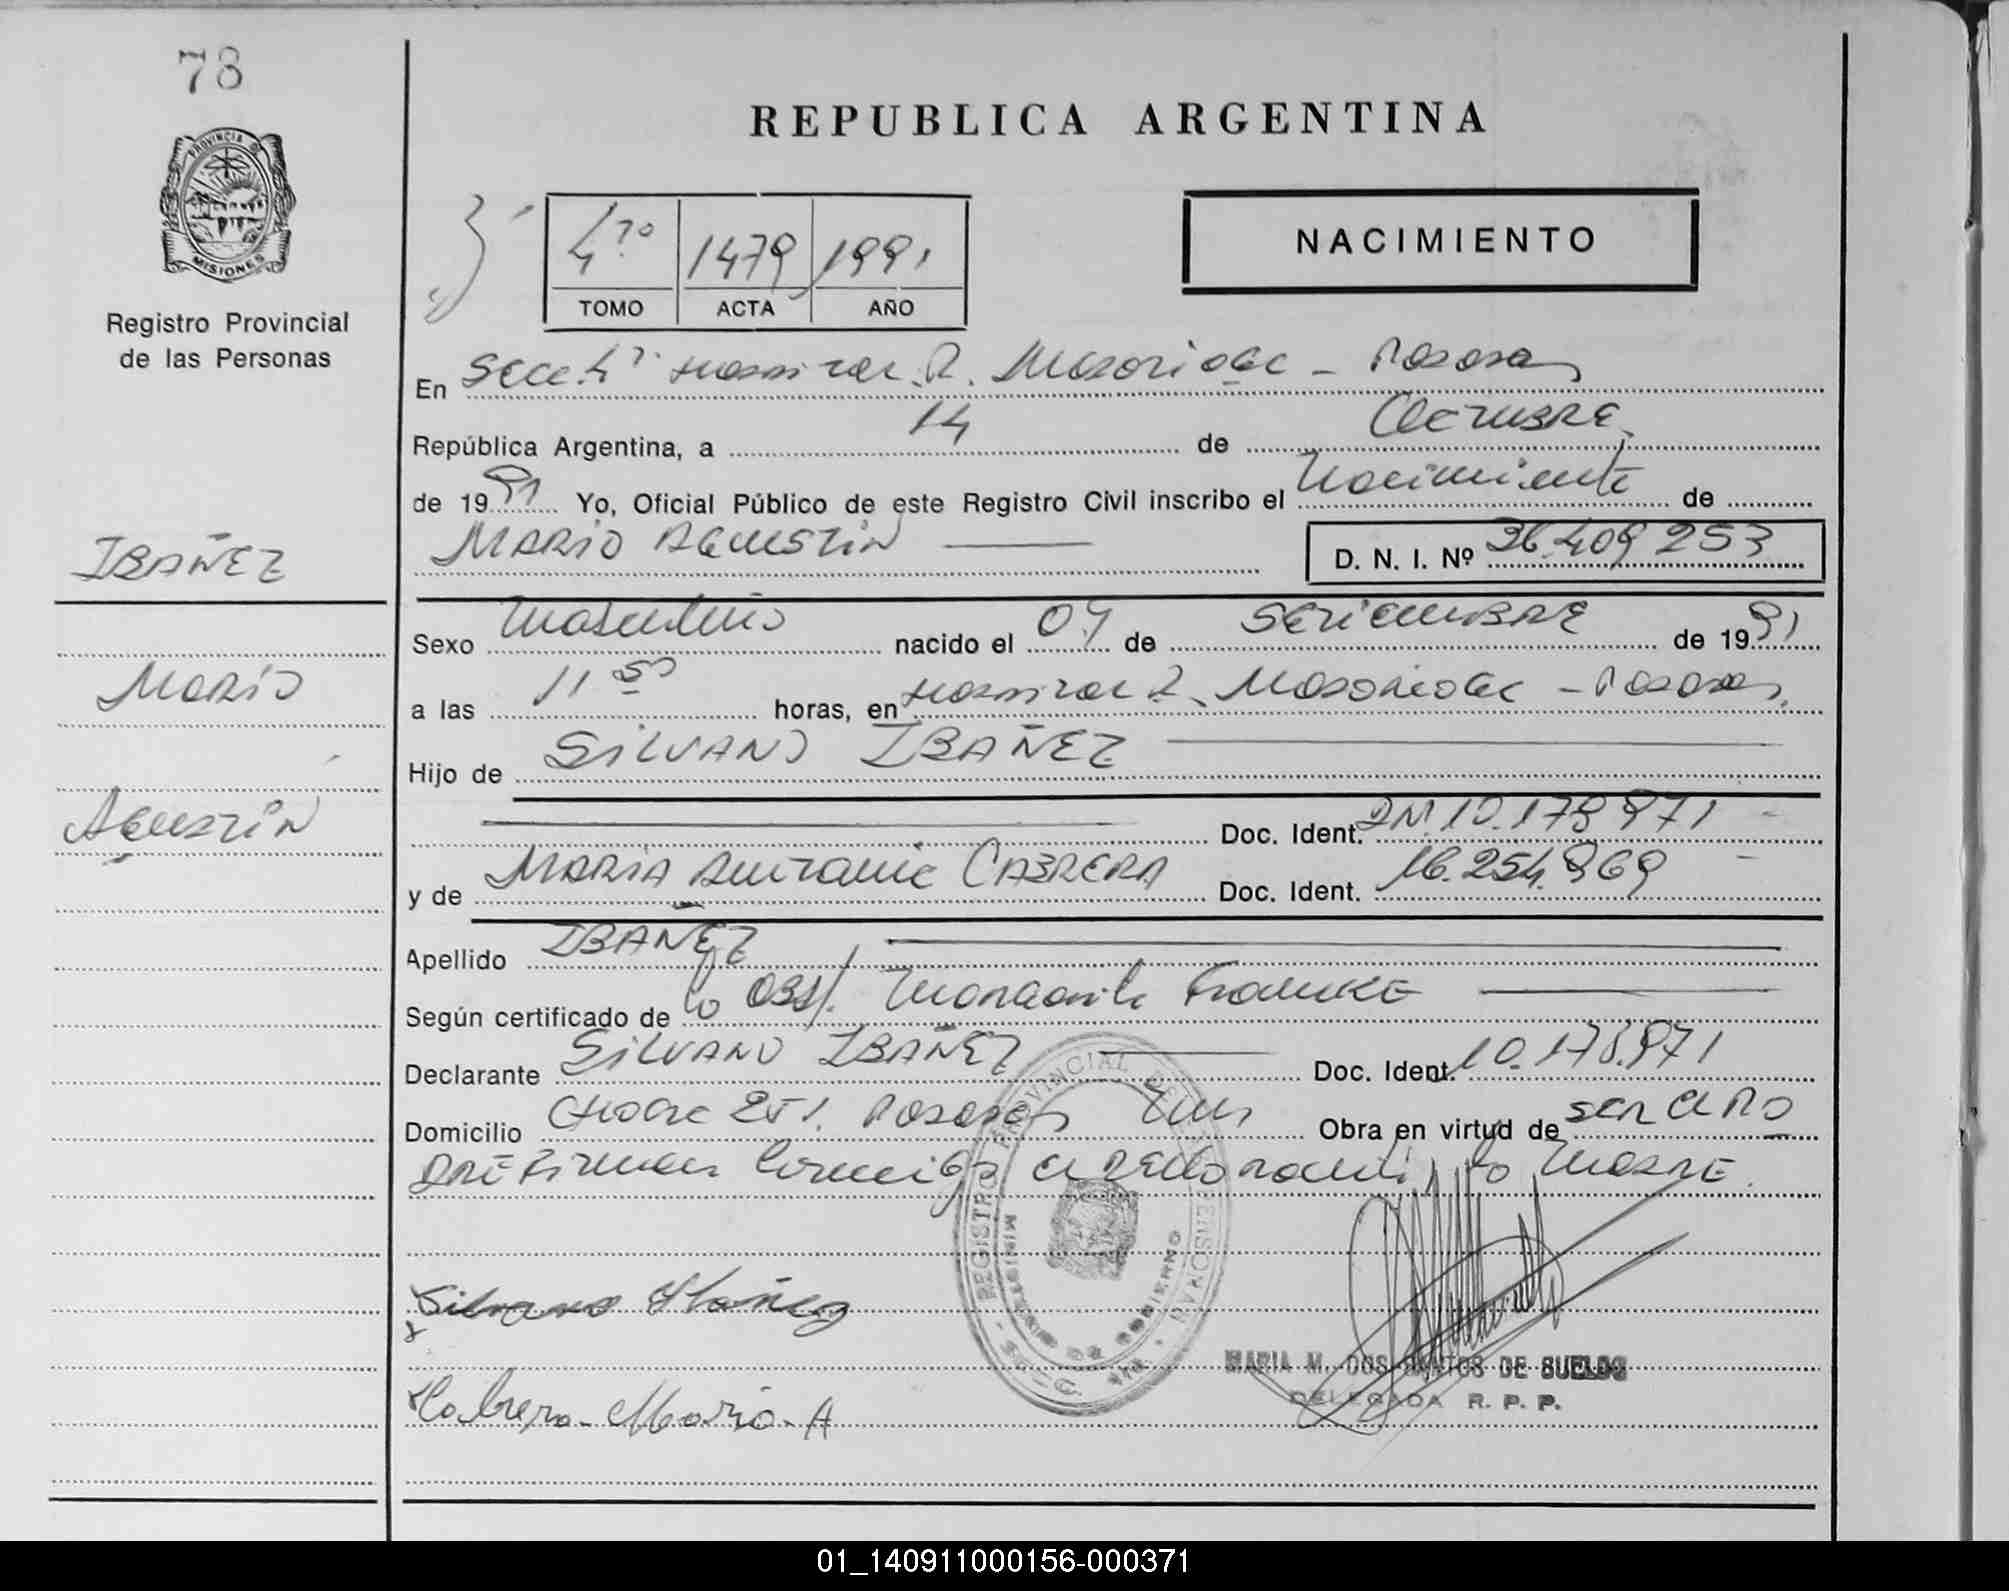 78
REPUBLICA ARGENTINA
PROVINCIA DE
MISIONES
Registro Provincial
de las Personas
NACIMIENTO
4to 1479 1991
TOMO ACTA AÑO
En Secc. 4ª Hospital R. Madariaga - Posadas
República Argentina, a 14 de Octubre
de 1991 Yo, Oficial Público de este Registro Civil inscribo el Nacimiento de
IBAÑEZ
MARIO AGUSTIN D. N. I. Nº 36.409 253
Sexo Masculino nacido el 04 de SETIEMBRE de 1991
Mario
a las 11 50 horas, en Hospital R. Madariaga - Posadas
Hijo de SILVANO IBAÑEZ
AGUSTIN
Doc. Ident. DNI. 10.178 971
y de MARIA CABRERA Doc. Ident. 16.254.969
Apellido IBAÑEZ
Según certificado de la Obst. Margarita FRANKE
Declarante SILVANO IBAÑEZ Doc. Ident. 10.178.971
Domicilio 251. Posadas Mnes Obra en virtud de ser el PA
DRE Firman conmigo el declarante, la MADRE.
REGISTRO PROVINCIAL DE LAS PERSONAS
MINISTERIO DE GOBIERNO
Silvano Ibañez
Cabrera - Maria - A
MARIA M. DOS SANTOS DE SUELDO
DELEGADA R. P. P.
01_140911000156-000371